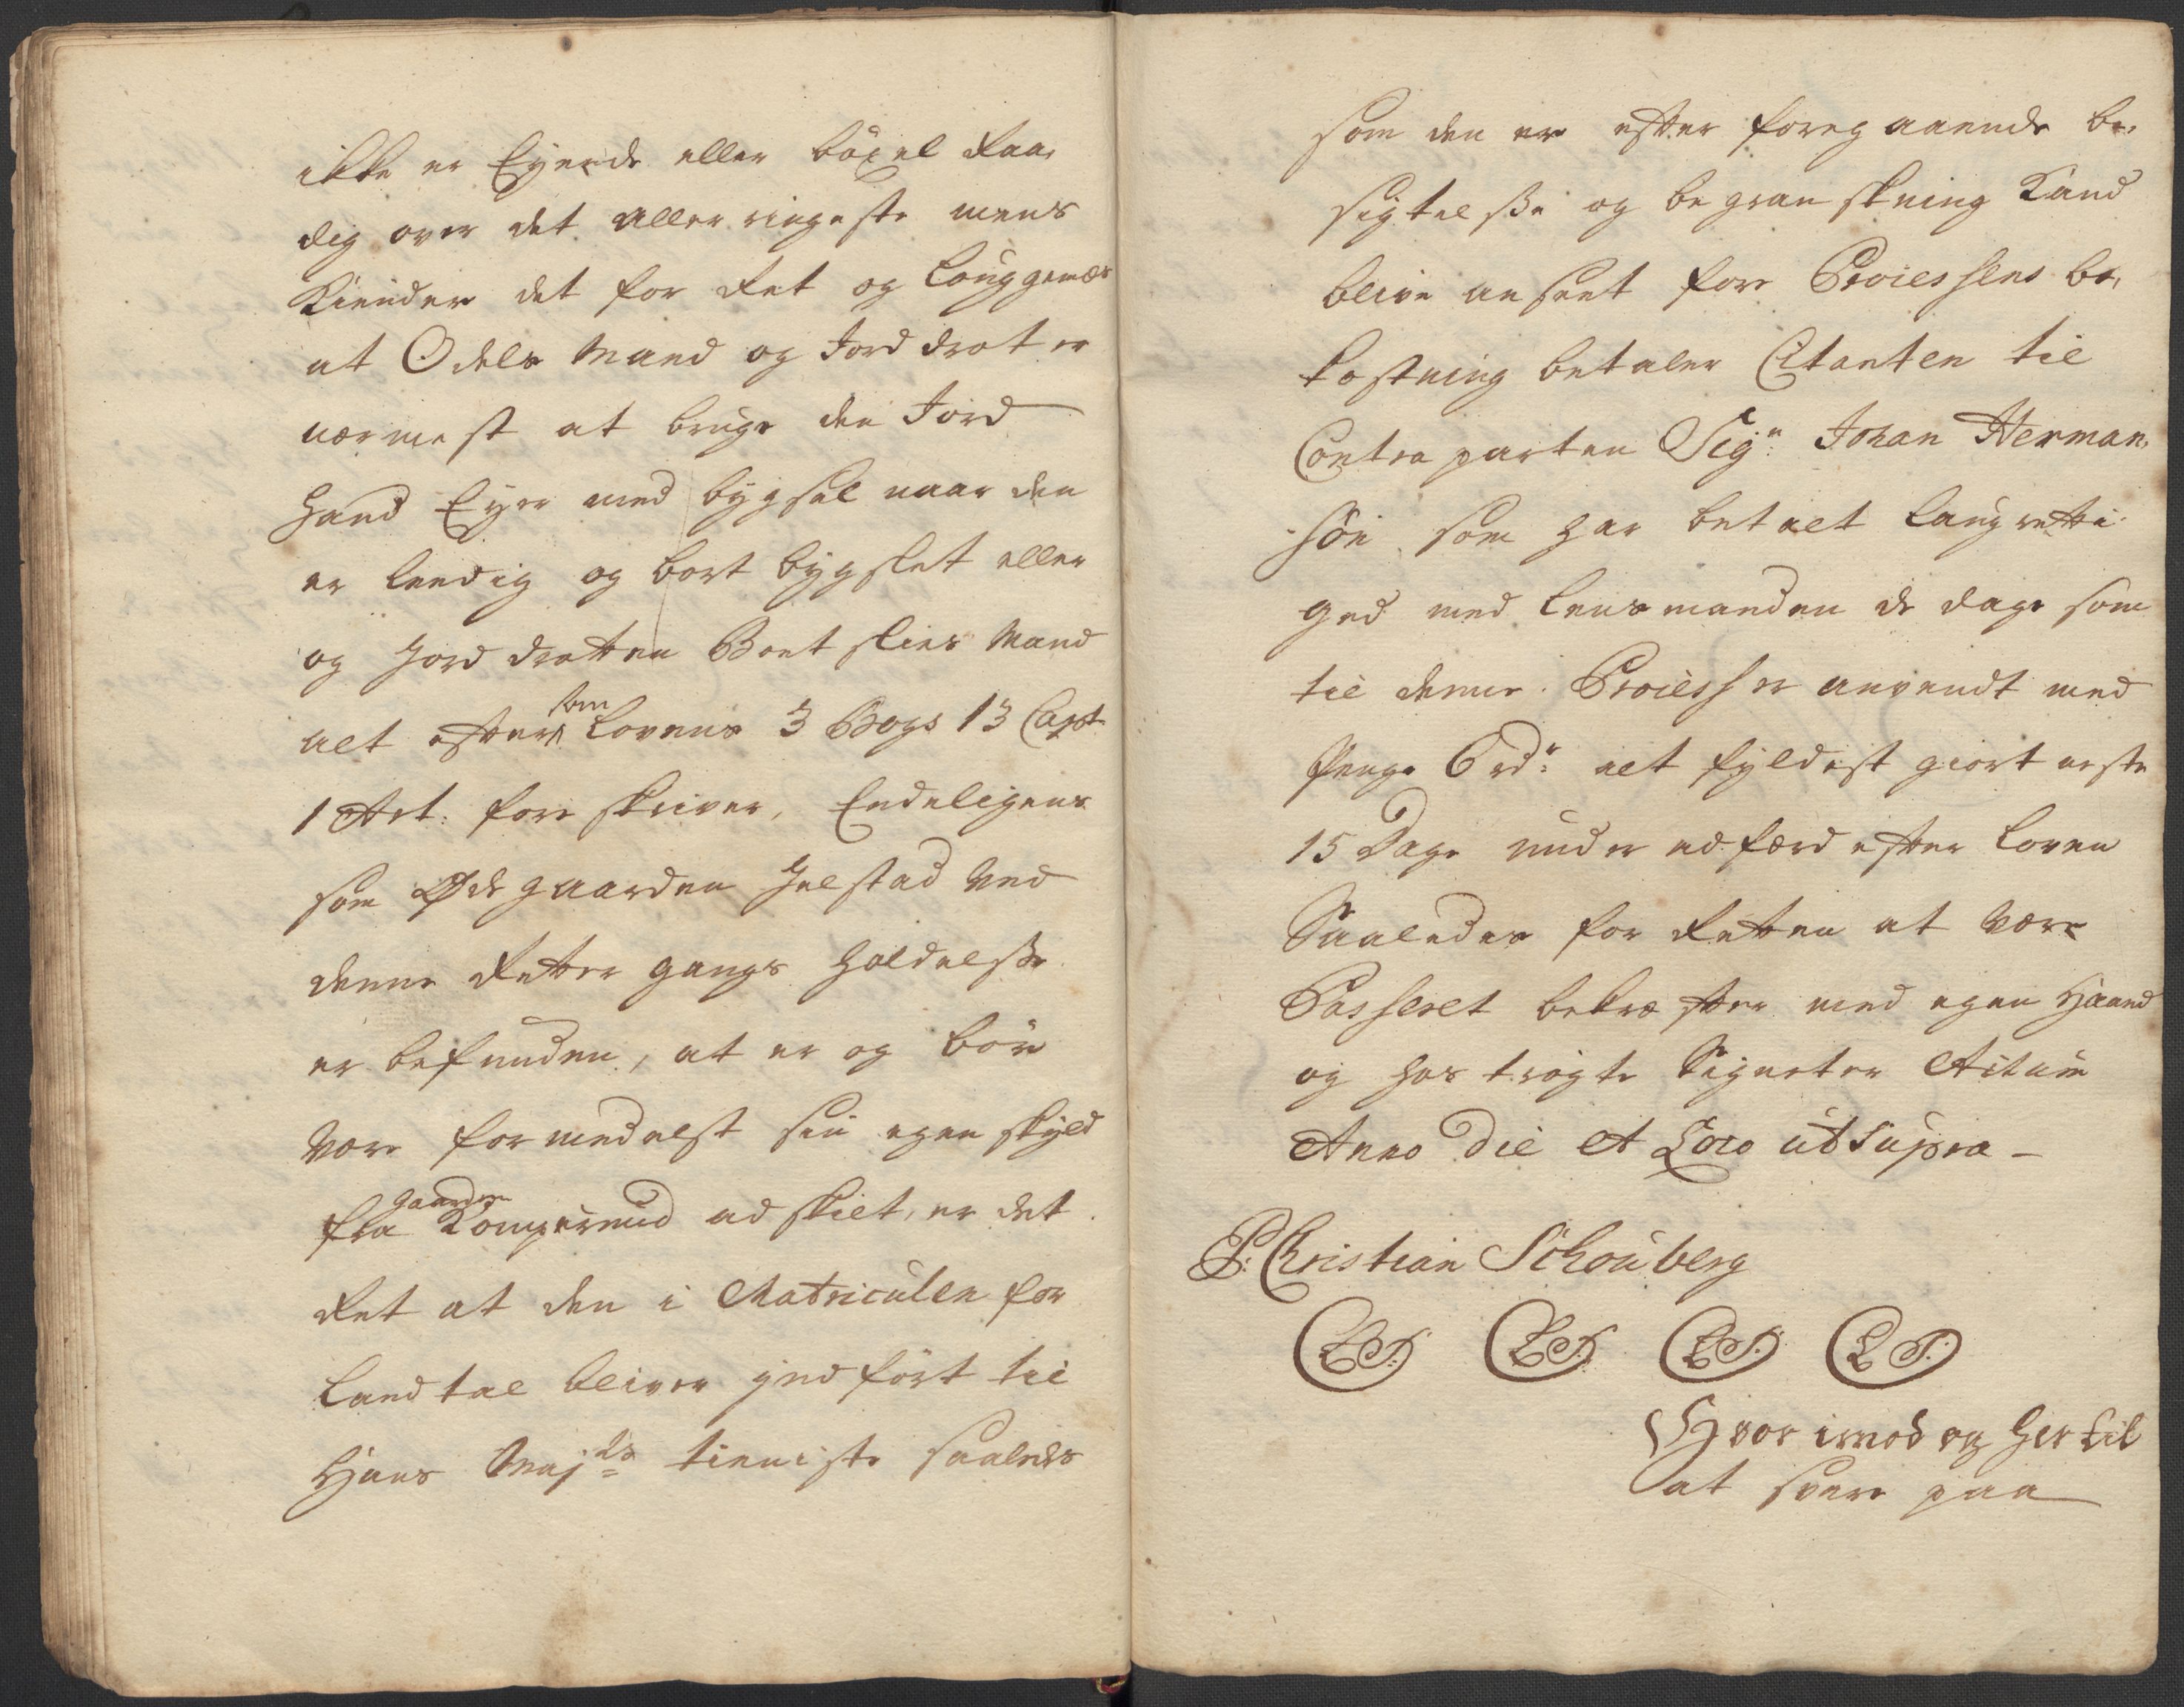 ikke er Eyende eller böxel Raa,
dig over det aller ringeste mens
Kiender det for Ret og Louggemæs
at Odels Mand og Jorddrot er
nærmest at bruge den Jord
Hand Eyer med bygsel naar den
er Leedig og bort bygslet eller
og Jorddrotten Boetslies Mand
alt efter som Lovens 3 Bogs 13 Capt
1 Art: fore skriver, Endeligens
som Ødegaarden Helstad ved
denne Retter gangs Holdelße
er befunden, at er og bör
være formedelst sin egen skyld
fra Gaarden Kompérud ad skilt, er det
Ret at den i Matriculen for
Landtal bliver indfört til
Hans Maj:ts tienniste saaleds
som den er efter foregaaende be,
sigtelße og begranskning Kand
blive anseet fore Processens be,
kostning betaler Citanten til
Contraparten Sig:r Johan Herman,
-sön som har betalt Laugretti
ged med Lensmanden de dage som
til denne Process er anvendt med
Penge 6 rd:r alt fyldist giort næste
15 Dage under adfærd efter Loven
Saaledes for Retten at være
Passeret bekræfter med egen Haand
og hos trögte Signeter Actum
Anno Die et Loco ut Supra -
P: Christian Schouberg
LS: LS: LS: LS:
Hvor imod og Her til
at svare paa